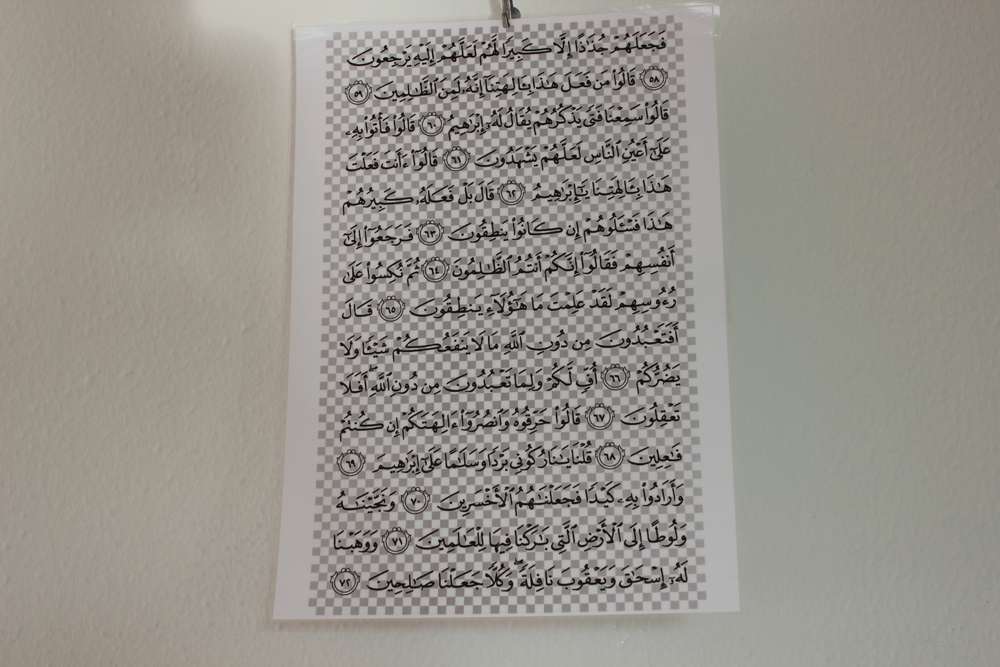 فَجَعَلَهُمْ جُذَٰذًا إِلَّا كَبِيرًا لَّهُمْ لَعَلَّهُمْ إِلَيْهِ يَرْجِعُونَ
٥٨ قَالُوا۟ مَن فَعَلَ هَٰذَا بِـَٔالِهَتِنَآ إِنَّهُۥ لَمِنَ ٱلظَّٰلِمِينَ ٥٩
قَالُوا۟ سَمِعْنَا فَتًى يَذْكُرُهُمْ يُقَالُ لَهُۥٓ إِبْرَٰهِيمُ ٦٠ قَالُوا۟ فَأْتُوا۟ بِهِۦ
عَلَىٰٓ أَعْيُنِ ٱلنَّاسِ لَعَلَّهُمْ يَشْهَدُونَ ٦١ قَالُوٓا۟ ءَأَنتَ فَعَلْتَ
هَٰذَا بِـَٔالِهَتِنَا يَٰٓإِبْرَٰهِيمُ ٦٢ قَالَ بَلْ فَعَلَهُۥ كَبِيرُهُمْ
هَٰذَا فَسْـَٔلُوهُمْ إِن كَانُوا۟ يَنطِقُونَ ٦٣ فَرَجَعُوٓا۟ إِلَىٰٓ
أَنفُسِهِمْ فَقَالُوٓا۟ إِنَّكُمْ أَنتُمُ ٱلظَّٰلِمُونَ ٦٤ ثُمَّ نُكِسُوا۟ عَلَىٰ
رُءُوسِهِمْ لَقَدْ عَلِمْتَ مَا هَٰٓؤُلَآءِ يَنطِقُونَ ٦٥ قَالَ
أَفَتَعْبُدُونَ مِن دُونِ ٱللَّهِ مَا لَا يَنفَعُكُمْ شَيْـًٔا وَلَا
يَضُرُّكُمْ ٦٦ أُفٍّ لَّكُمْ وَلِمَا تَعْبُدُونَ مِن دُونِ ٱللَّهِ ۖ أَفَلَا
تَعْقِلُونَ ٦٧ قَالُوا۟ حَرِّقُوهُ وَٱنصُرُوٓا۟ ءَالِهَتَكُمْ إِن كُنتُمْ
فَٰعِلِينَ ٦٨ قُلْنَا يَٰنَارُ كُونِى بَرْدًا وَسَلَٰمًا عَلَىٰٓ إِبْرَٰهِيمَ ٦٩
وَأَرَادُوا۟ بِهِۦ كَيْدًا فَجَعَلْنَٰهُمُ ٱلْأَخْسَرِينَ ٧٠ وَنَجَّيْنَٰهُ
وَلُوطًا إِلَى ٱلْأَرْضِ ٱلَّتِى بَٰرَكْنَا فِيهَا لِلْعَٰلَمِينَ ٧١ وَوَهَبْنَا
لَهُۥٓ إِسْحَٰقَ وَيَعْقُوبَ نَافِلَةً ۖ وَكُلًّا جَعَلْنَا صَٰلِحِينَ ٧٢